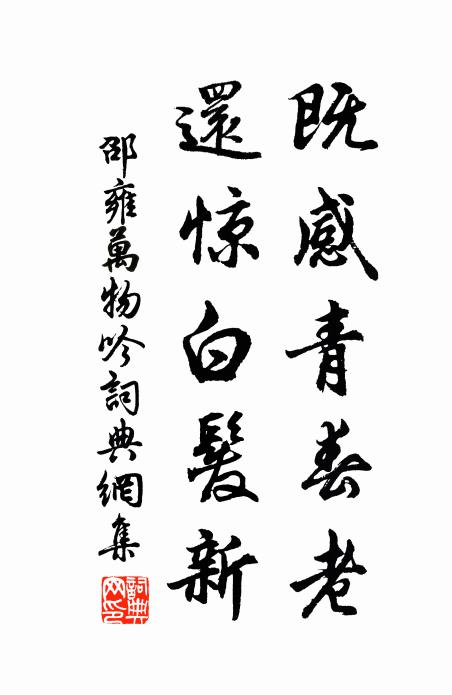 既感青春老
還惊白髮新
邵雍萬物吟詞典網集
詞典網印